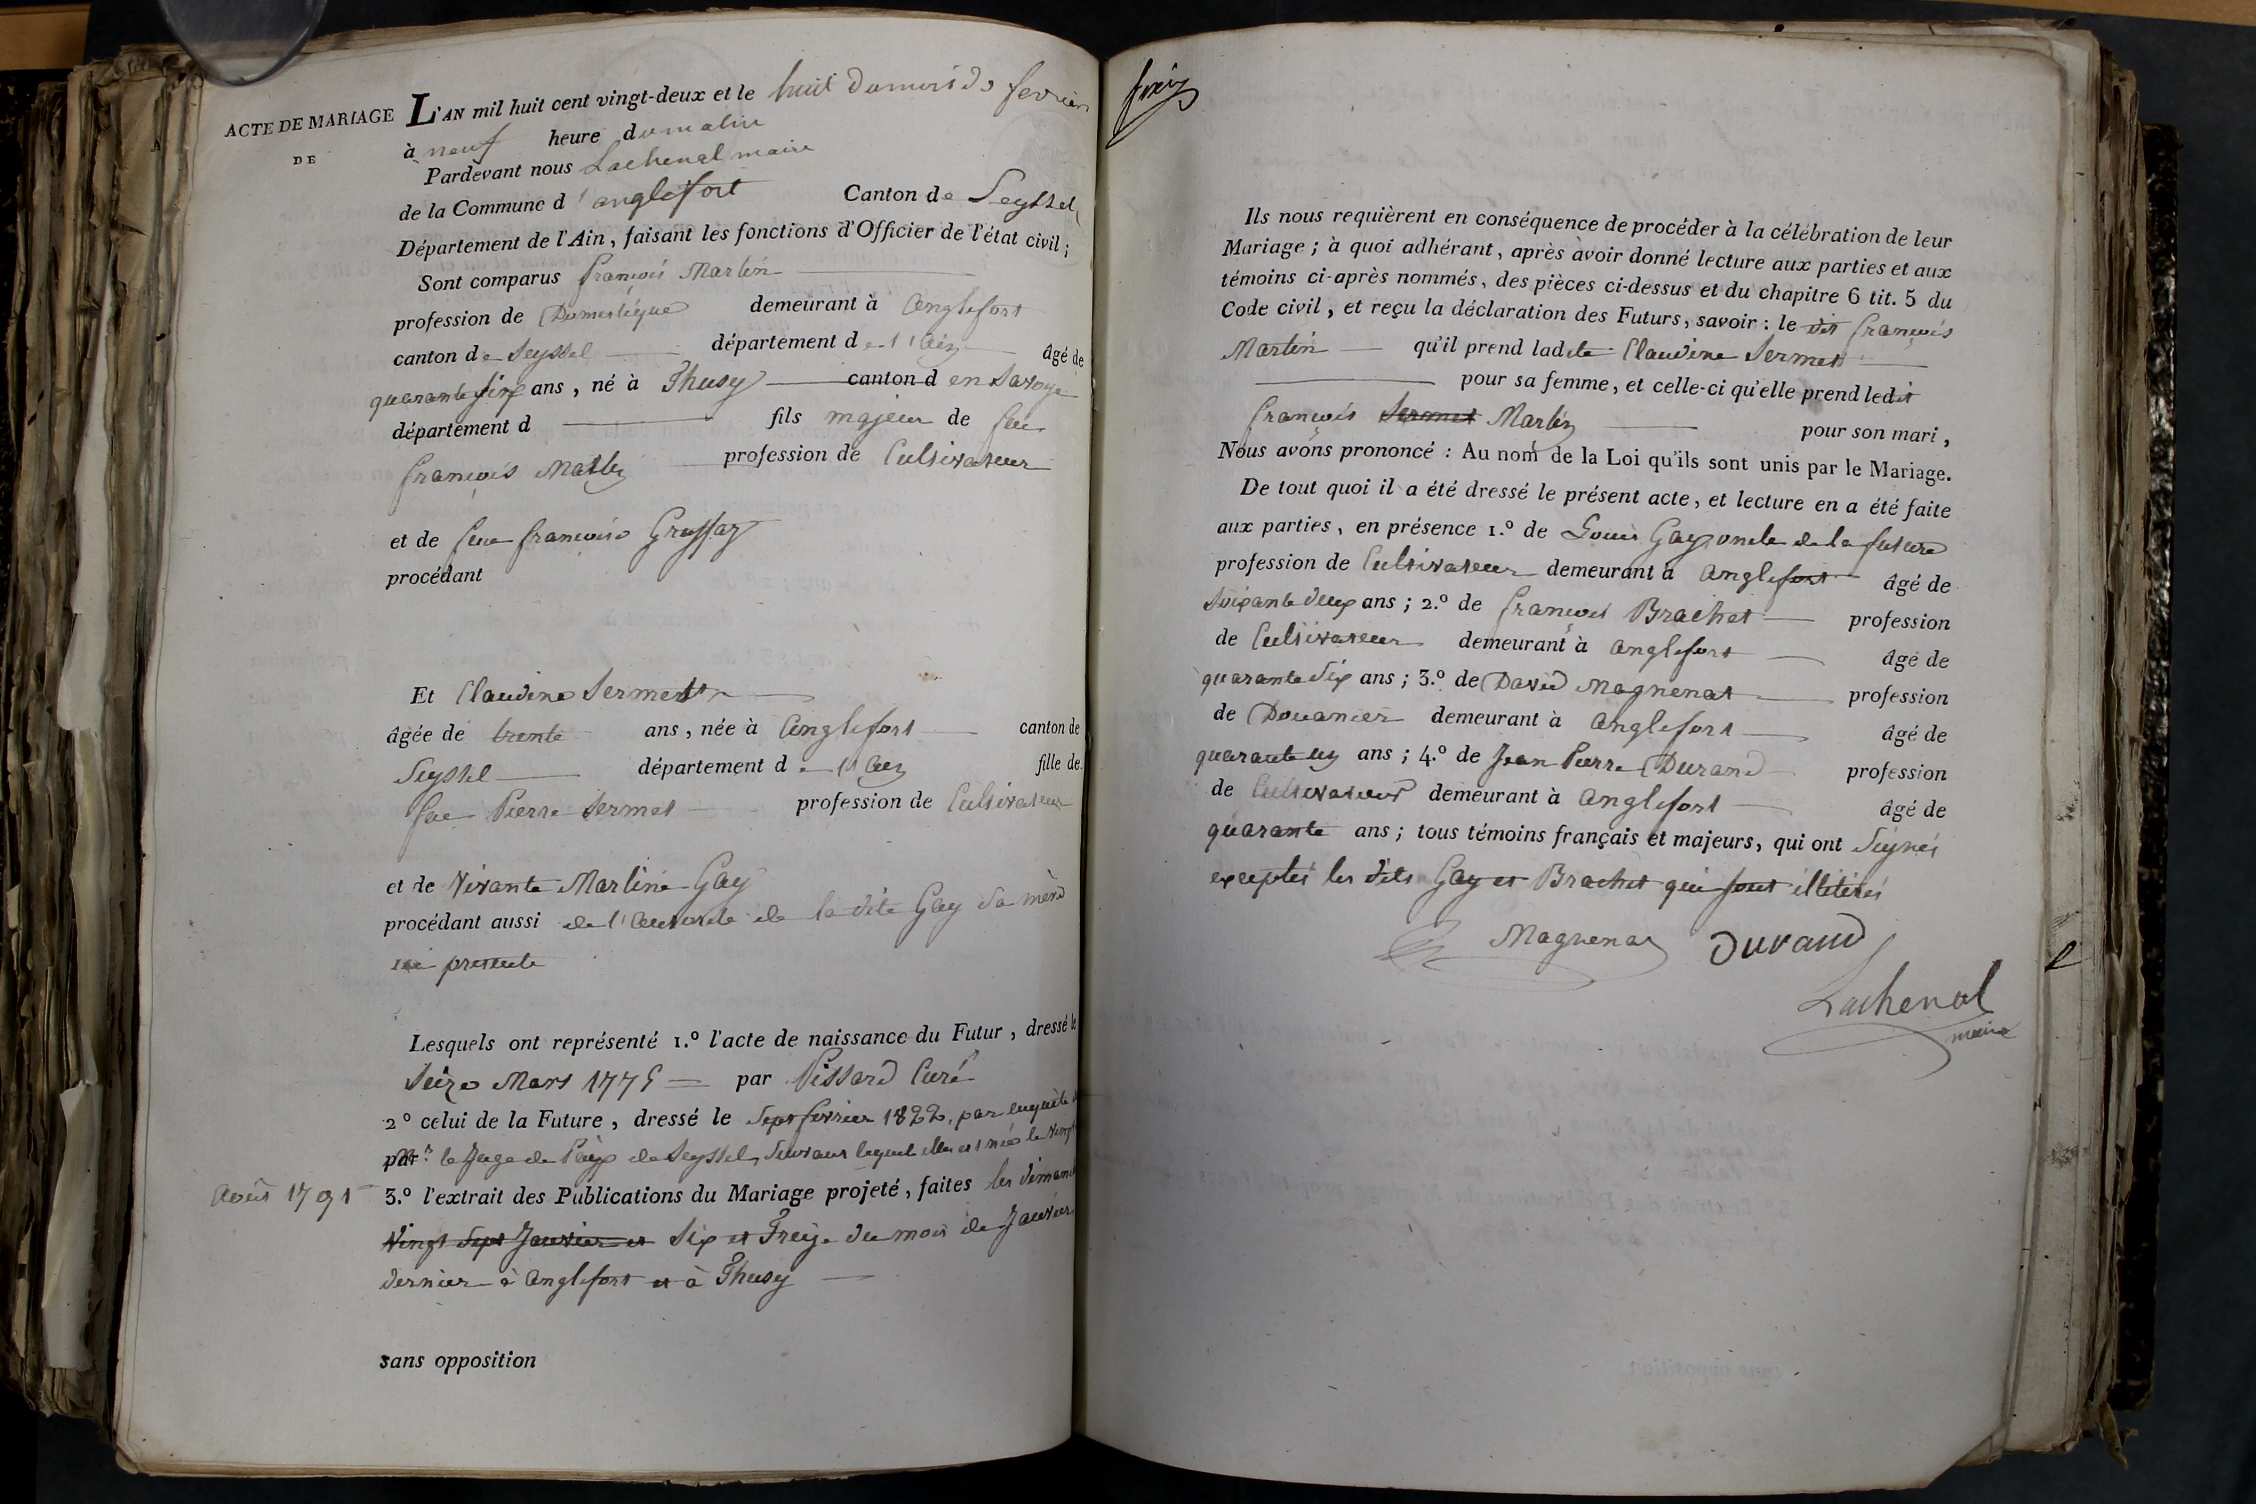 ACTE DE MARIAGE
DE
L'AN mil huit cent vingt-deux et le huit du mois de fevrier
à neuf heure du matin
Pardevant nous Lachenal maire
de la Commune d'anglefort Canton de Seyssel
Département de l'Ain, faisant les fonctions d'Officier de l'état civil;
Sont comparus françois Martin
profession de Domestique demeurant à anglefort
canton de Seyssel département de l'ain âgé de
quarante six ans, né à Thusy canton d en Savoye
département d fils majeur de feu
françois Martin profession de Cultivateur
et de feue françoise
procédant
Et Claudine Sermet
âgée de trente ans, née à anglefort canton de
Seyssel département de l'ain fille de
feu Pierre Sermet profession de Cultivateur
et de vivante Martine Gay
procédant aussi de l'autorité de la dite Gay sa mère
ici presente
Lesquels ont représenté 1.º l'acte de naissance du Futur, dressé le
Seize Mars 1775 par Pissard Curé
2º celui de la Future, dressé le Sept fevrier 1822, par enquête
par le Juge de Paix de Seyssel, suivant lequel elle est née le vingt
aout 1791
3.º l'extrait des Publications du Mariage projeté, faites les dimanc
vingt sept Janvier et Six et Treize du mois de Janvier
dernier à anglefort et à Thusy
sans opposition
Ils nous requièrent en conséquence de procéder à la célébration de leur
Mariage; à quoi adhérant, après avoir donné lecture aux parties et aux
témoins ci-après nommés, des pièces ci-dessus et du chapitre 6 tit. 5 du
Code civil, et reçu la déclaration des Futurs, savoir: le dit françois
Martin qu'il prend ladite Claudine Sermet
pour sa femme, et celle-ci qu'elle prend ledit
françois Sermet Martin pour son mari,
Nous avons prononcé: Au nom de la Loi qu'ils sont unis par le Mariage.
De tout quoi il a été dressé le présent acte, et lecture en a été faite
aux parties, en présence 1.º de Louis Gay oncle de la future
profession de Cultivateur demeurant à anglefort âgé de
soixante deux ans; 2.º de françois Brachet profession
de Cultivateur demeurant à anglefort âgé de
quarante six ans; 3.º de David Magnenat profession
de Douanier demeurant à anglefort âgé de
quarante un ans; 4.º de Jean Pierre Durand profession
de Cultivateur demeurant à anglefort âgé de
quarante ans; tous témoins français et majeurs, qui ont Signés
exceptés les dits Gay et Brachet qui sont illitérés
Magnenat Durand
Lachenal
maire